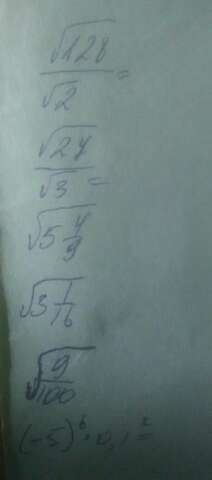 √128/√2 =
√27/√3 =
√5 4/9
√3 1/16
√9/100
(-5)⁶ · 0,1